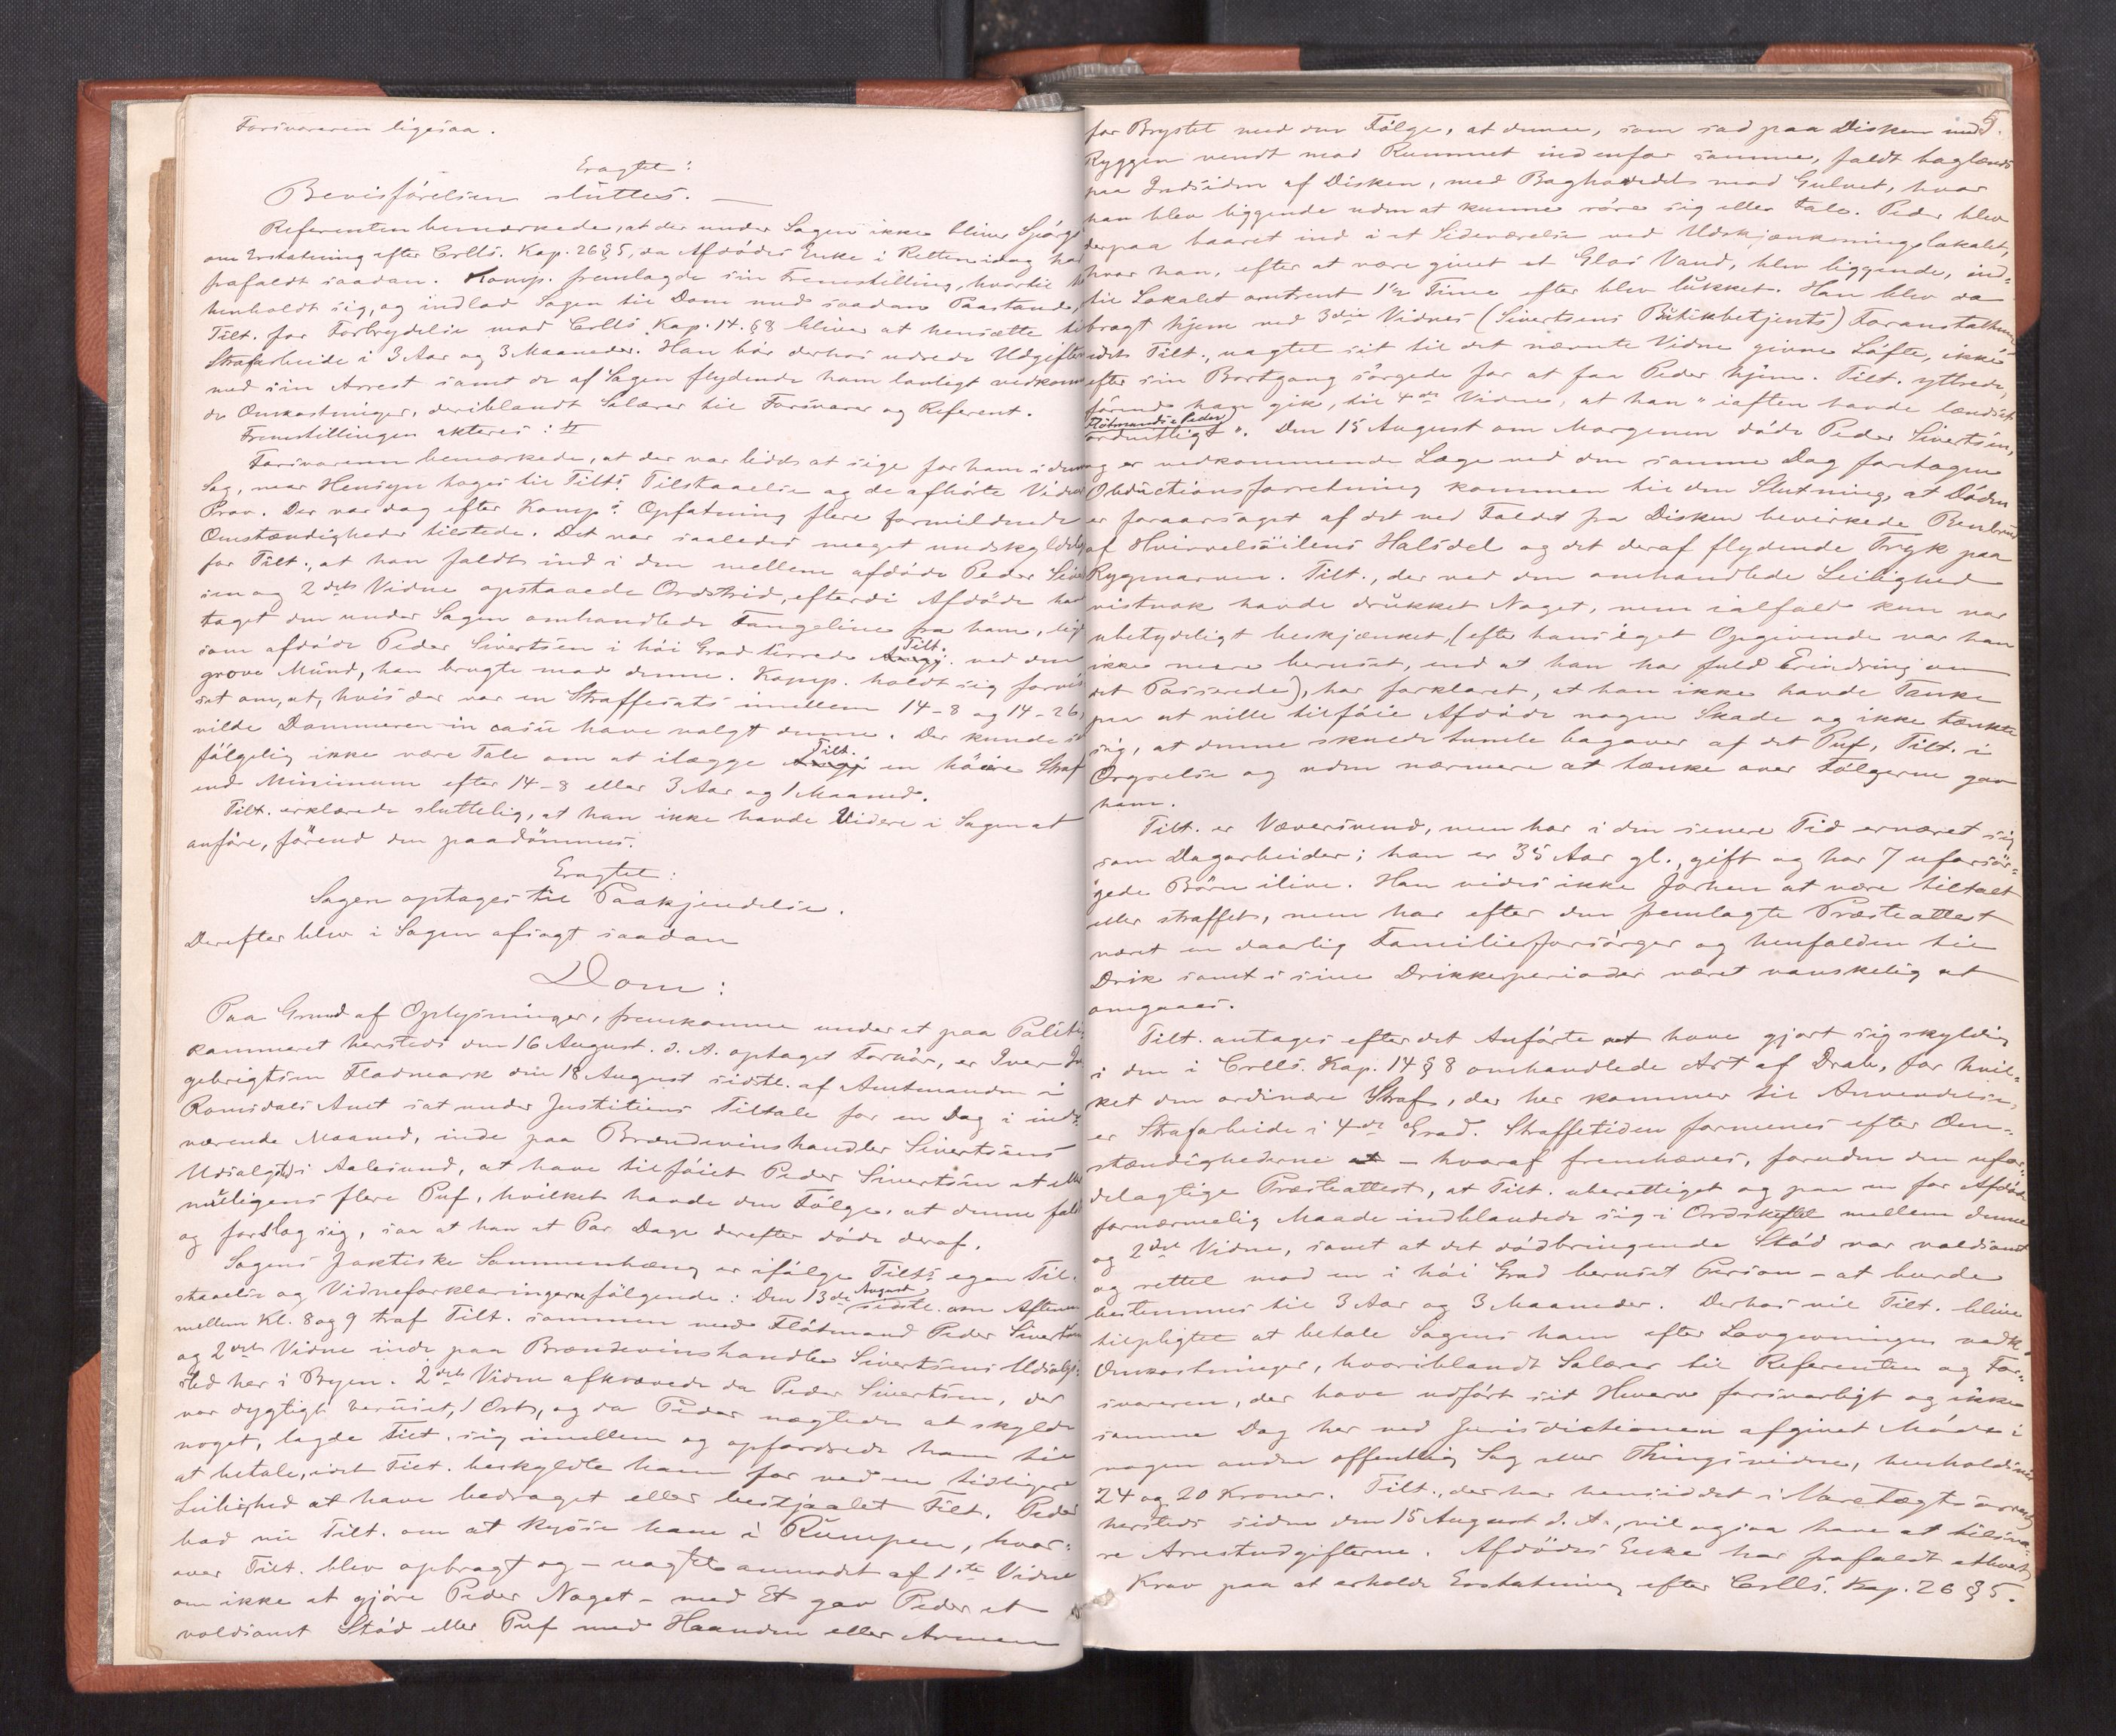 Forsvareren ligesaa.
Eragtet:
Bevisførelsen sluttes. —
Referenten bemærkede, at der under Sagen ikke bliver Spørgs
om Erstatning efter Crlls. Kap. 26 § 5, da Afdødes Enke i Retten idag har
frafaldt saadan. Komp. fremlagde sin Fremstilling, hvortil
henholdt sig, og indlod Sagen til Dom med saadan Paastand,
Tilt. for Forbrydelse mod Crlls Kap. 14. § 8 bliver at hensætte til
Strafarbeide i 3 Aar og 3 Maaneder. Han bør derhos udrede Udgifter
ved sin Arrest samt de af Sagen flydende ham lovligt vedkom
de Omkostninger, deriblandt Salærer til Forsvarer og Referent.
Fremstillingen akteres:
Forsvareren bemærkede, at der var lidet at sige for ham i denne
Sag, naar Hensyn toges til Tilts Tilstaaelse og de afhørte Vidners
Prov. Der var dog efter Komp.s Opfatning flere formildende
Omstændigheder tilstede. Det var saaledes meget undskyldeligt
for Tilt., at han faldt ind i den mellem afdøde Peder Siver
sen og 2det Vidne opstaaede Ordstrid, efterdi Afdøde havde
taget den under Sagen omhandlede Fangeline fra ham, lige
som afdøde Peder Sivertsen i høi Grad tirrede Tilt. ved den
grove Mund, han brugte mod denne. Komp. holdt sig forvis
set om, at, hvis der var en Straffesats imellem 14-8 og 14-26,
vilde Dommeren in casu have valgt denne. Der kunde
følgelig ikke være Tale om at ilægge Tilt. en høiere Straf
end Minimum efter 14-8 eller 3 Aar og 1 Maaned.
Tilt. erklærede sluttelig, at han ikke havde Videre i Sagen at
anføre, førend den paadømmes.
Eragtet:
Sagen optages til Paakjendelse.
Derefter blev i Sagen afsagt saadan
Dom:
Paa Grund af Oplysninger, fremkomne under et paa Politi
kammeret hersteds den 16 August d. A. optaget Forhør, er Iver In
gebrigtsen Fladmark den 18 August sidstl. af Amtmanden i
Romsdals Amt sat under Justitiens Tiltale for en Dag i inde
værende Maaned, inde paa Brændevinshandler Sivertsens
Udsalgsted i Aalesund, at have tilføiet Peder Sivertsen et eller
muligens flere Puf, hvilket havde den Følge, at denne faldt
og forslog sig, saa at han et Par Dage derefter døde deraf.
Sagens faktiske Sammenhæng er ifølge Tilts egen Til-
staaelse og Vidneforklaringerne følgende: Den 13de August sidstl. om Aftenen
mellem Kl. 8 og 9 traf Tilt. sammen med Fløtmand Peder Sivertsen
og 2det Vidne inde paa Brændevinshandler Sivertsens Udsalgs-
sted her i Byen. 2det Vidne afkrævede da Peder Sivertsen, der
var dygtigt beruset, 1 Ort, og da Peder nægtede at skylde
noget, lagde Tilt. sig imellem og opfordrede ham til
at betale, idet Tilt. beskyldte ham for ved en tidligere
Leilighed at have bedraget eller bestjaalet Tilt. Peder
bad nu Tilt. om at kysse ham i Rumpen, hvor-
over Tilt. blev opbragt og – uagtet anmodet af 1ste Vidne
om ikke at gjøre Peder Noget – med Et gav Peder et
voldsomt Stød eller Puf med Haanden eller Armen
5.
for Brystet med den Følge, at denne, som sad paa Disken med
Ryggen vendt mod Rummet indenfor samme, faldt baglænds
paa Indsiden af Disken, med Baghovedet mod Gulvet, hvor
han blev liggende uden at kunne røre sig eller tale. Peder blev
derpaa baaret ind i et Sideværelse ved Udskjænkningslokalet,
hvor han, efter at være givet et Glas Vand, blev liggende, ind-
til Lokalet omtrent 1½ Time efter blev lukket. Han blev da
bragt hjem ved 3die Vidnes (Sivertsens Butikbetjents) Foranstaltning
idet Tilt., uagtet sit til det nævnte Vidne givne Løfte, ikke
efter sin Bortgang sørgede for at faa Peder hjem. Tilt. yttrede,
førend han gik, til 4de Vidne, at han "iaften havde lændset
Fløtmands-Peder
ordentligt". Den 15 August om Morgenen døde Peder Sivertsen,
og er vedkommende Læge ved den samme Dag foretagne
Obductionsforretning kommen til den Slutning, at Døden
er foraarsaget af det ved Faldet fra Disken bevirkede Benbrud
af Hvirvelsøilens Halsdel og det deraf flydende Tryk paa
Rygmarven. Tilt., der ved den omhandlede Leilighed
vistnok havde drukket Noget, men ialfald kun var
ubetydeligt beskjænket, (efter hans eget Opgivende var han
ikke mere beruset, end at han har fuld Erindring om
det Passerede), har forklaret, at han ikke havde Tanke
paa at ville tilføie Afdøde nogen Skade og ikke tænkte
sig, at denne skulde tumle bagover af det Puf, Tilt. i
Ærgrelse og uden nærmere at tænke over Følgerne gav
ham.
Tilt. er Væversvend, men har i den senere Tid ernæret sig
som Dagarbeider; han er 35 Aar gl., gift og har 7 uforsør-
gede Børn ilive. Han vides ikke forhen at være tiltalt
eller straffet, men har efter den fremlagte Præsteattest
været en daarlig Familieforsørger og henfalden til
Drik samt i sine Drikkeperioder været vanskelig at
omgaaes.
Tilt. antages efter det Anførte at have gjort sig skyldig
i den i Crlls. Kap. 14 § 8 omhandlede Art af Drab, for hvil-
ket den ordinære Straf, der her kommer til Anvendelse,
er Strafarbeide i 4de Grad. Straffetiden formenes efter Om-
stændighederne – hvoraf fremhæves, foruden den ufor-
delagtige Præsteattest, at Tilt. uberettiget og paa en for Afdøde
fornærmelig Maade indblandede sig i Ordskiftet mellem denne
og 2det Vidne, samt at det dødbringende Stød var voldsomt
og rettet mod en i høi Grad beruset Person – at burde
bestemmes til 3 Aar og 3 Maaneder. Derhos vil Tilt. blive
tilpligtet at betale Sagens ham efter Lovgivningen vedk.
Omkostninger, hvoriblandt Salærer til Referenten og For-
svareren, der have udført sit Hverv forsvarligt og ikke
samme Dag her ved Jurisdictionen afgivet Møde i
nogen anden offentlig Sag eller Thingsvidne, henholdsvis
24 og 20 Kroner. Tilt., der har hensiddet i Varetægtsarrest
hersteds siden den 15 August d. A., vil ogsaa have at tilsva-
re Arrestudgifterne. Afdødes Enke har frafaldt ethvert
Krav paa at erholde Erstatning efter Crlls. Kap. 26 § 5.